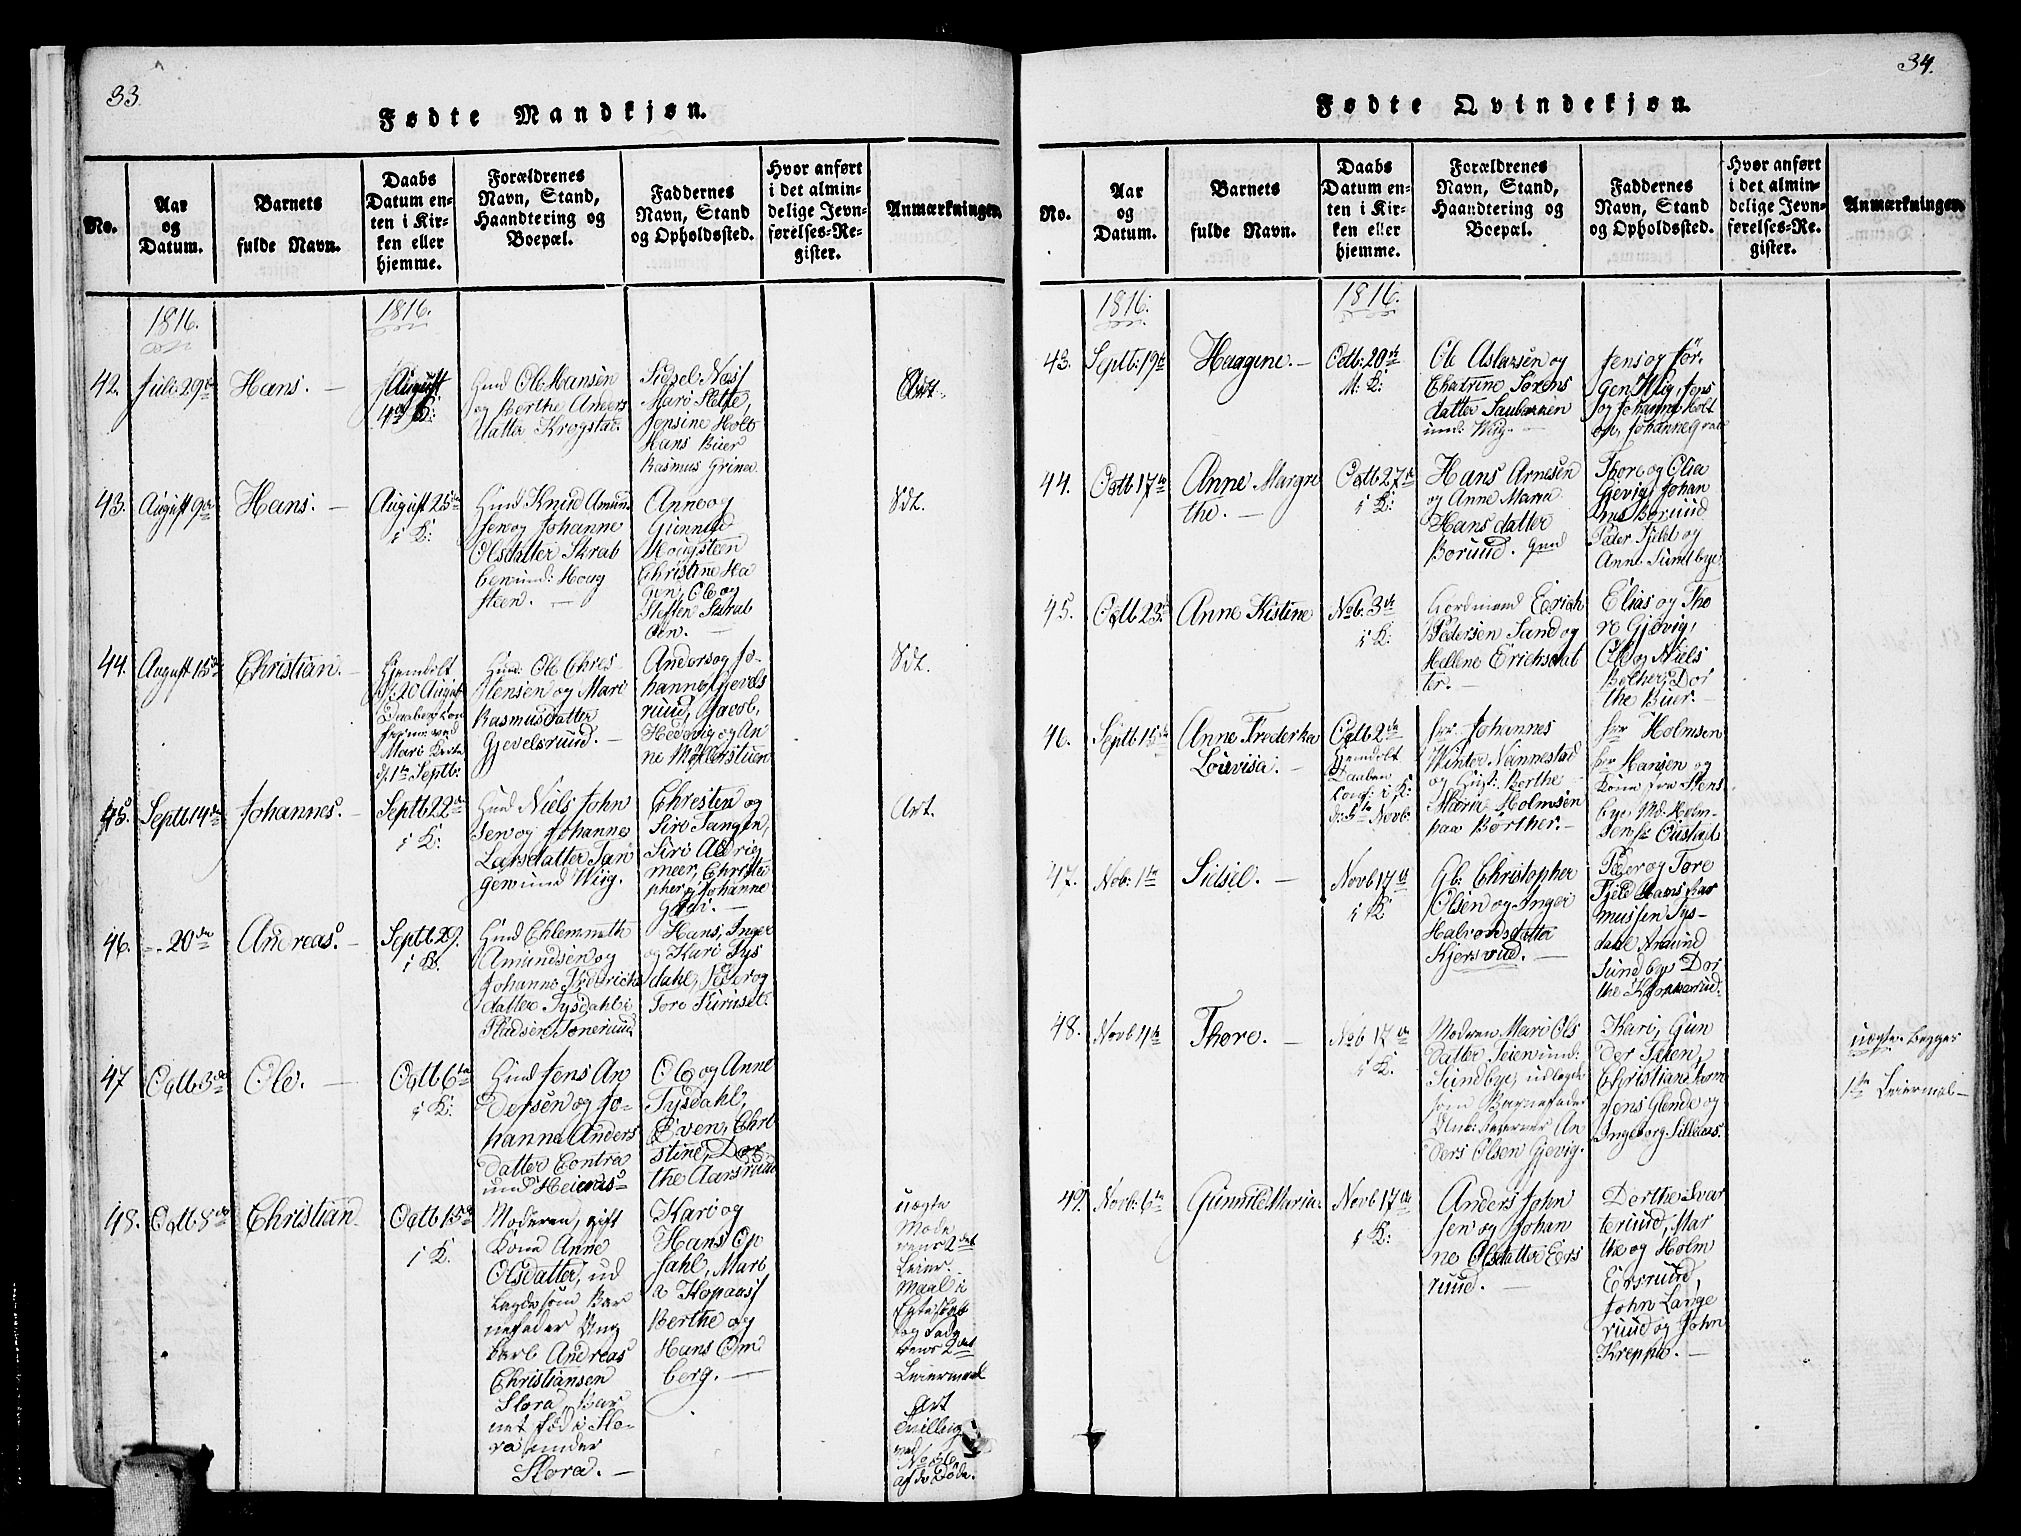 33.
Fødte Mandkjøn.
No.
Aar
og
Datum.
Barnets
fulde Navn.
Daabs
Datum en-
ten i Kir-
ken eller
hjemme.
Forældrenes
Navn, Stand,
Haandtering og
Boepæl.
Faddernes
Navn, Stand
og Opholdssted.
Hvor anført
i det almin-
delige Jevn-
førelses-Re-
gister.
Anmærkninger.
1816.
1816.
42.
Juli 29de
Hans. –
August
4de K:
Huusmd Ole Hansen
og Berthe Anders
datter Krogstad.
Sidsel Næss
Mari Slette,
Jensine Holt
Hans Buer
Rasmus Grinde
43.
August 9de
Hans. –
August 25de
i K:
Huusmd Knud Amun
sen og Johanne
Olsdatter Skrab
ben und: Houg
steen. –
Anne og
Gunnild
Hougsteen
Christine Ha
gen, Ole og
Steffen Skrab
ben. –
Sdt.
44.
August 15de
Christian. –
Hjemdøbt
d. 20 August
Daaben con
firm: ved
Mari
d. 1te Septb:
Huusmd Ole Chres-
tensen og Mari
Rasmusdatter
Gjevelsruud. –
Anders og Jo-
hanne Gjevels
ruud, Jacob,
Hedevig og An
ne
Sdt.
45.
Septb 14de
Johannes. –
Septb 22de
i K:
Huusmd Niels John
sen og Johannes
Larsdatter Tan
gen und Wiig.
Christen og
Siri Tangen,
Siri Aldrig
meer, Christo
pher og Johanne
Art.
46.
— 20de
Andreas. –
Septb 29.
i K.
Huusmd Ehlemmath
Amundsen og
Johanne Fredrichs
datter Tysdahls
Pladsen Toneruud.
Hans, Inger
og Kari Tys
dahl, Peder og
Tore Furuset.
47
Octb 3de
Ole. –
Octb 6te
i K:
Huusmd Jens An
dersen og Jo-
hanna Anders
datter Contra
und Heieraas –
Ole og Anne
Tysdahl,
Even, Chri
stine, Dor
the Aarsruud
48.
Octb 8de
Christian.
Octb 15de
i K.
Moderen, gift
Kone Anne
Olsdatter, ud
lagde som Bar
nefader Ung
karl Andreas
Christiansen
Slora, Bar
net fød i Slo-
ra under
Slora. –
Kari og
Hans Op
sahl, Mart
a Kopaas
Berthe og
Hans Om
berg. –
uægte
Mode
rens 2det
Leier
Maal i
Egteskab
og Fade
rens 2det
Leiermaal
Art
Tvilling
ved
No 36
af de Døde.
34.
Fødte Qvindekjøn.
No.
Aar
og
Datum.
Barnets
fulde Navn.
Daabs
Datum en-
ten i Kir-
ken eller
hjemme.
Forældrenes
Navn, Stand,
Haandtering og
Boepæl.
Faddernes
Navn, Stand
og Opholdssted.
Hvor anført
i det almin-
delige Jevn-
førelses-Re-
gister.
Anmærkninger.
1816.
1816.
43.
Septb: 19de
Haagine. –
Octb: 20de
Ole Aslarsen og
Chatrine Sørens
datter Saubakken
und: Wiig. –
Jens og Jør-
gen Wiig, Jens
og Johanne Holt
44.
Octb 17de
Anne Margre
the. –
Octb 27de
i K:
Hans Arnesen
og Anne Maria
Hans datter
Boruud.
Thore og Olia
Gjevig, Johan
nes Boruud
Peder Fjeld og
Anne Sundbye.
45.
Octb 23de
Anne Kistine
Nob. 3de
i K:
Gordmand Erich
Pedersen Sand og
Hellene Erichsdat
ter. –
Elias og Tho
re Gjevig,
Ole og Niels
Bølher, Dor
the Buer. –
46.
Septb 15de
Anne Frederka
Lovisa. –
Octb 2de
Hjemdøbt
Daaben
Conf: i K:
d. 5te Novb.
Hr Johannes
Winter Nannestad
og Hust: Berthe
Maria Holmsen
paa Børther. –
Hr Holmsen
Hr Hansen og
Kone fra Stens
bye, Md. Holm-
sen fr
47.
Nob: 1te
Sidsel. –
Novb 17de
i K
Gb: Christopher
Olsen og Inger
Halvorsdatter
Kjersruud. –
Peder og Tore
Fjeld Hans Ras
mussen Tys-
dahl Amund
Sundbye Dor
the
48.
Novb 4de
Thore. –
Nob 17de
i K.
Moderen Mari Ols
datter Teien und:
Sundbye, udlagde
som Barnefader
An
ders Olsen Gjevig.
Kari, Gun
der Teien,
Christian
Jens Glende og
Ingeborg Sillaas.
uægte Begges
1te Leiermal –
49.
Novb: 6te
Gunnild Maria.
Novb 17de
i K:
Anders John
sen og Johan
ne Olsdatter Eers
ruud. –
Dorthe Svar
teruud, Mar
the og Holm
Eersruud,
John Lange
ruud og John
Kreppa. –